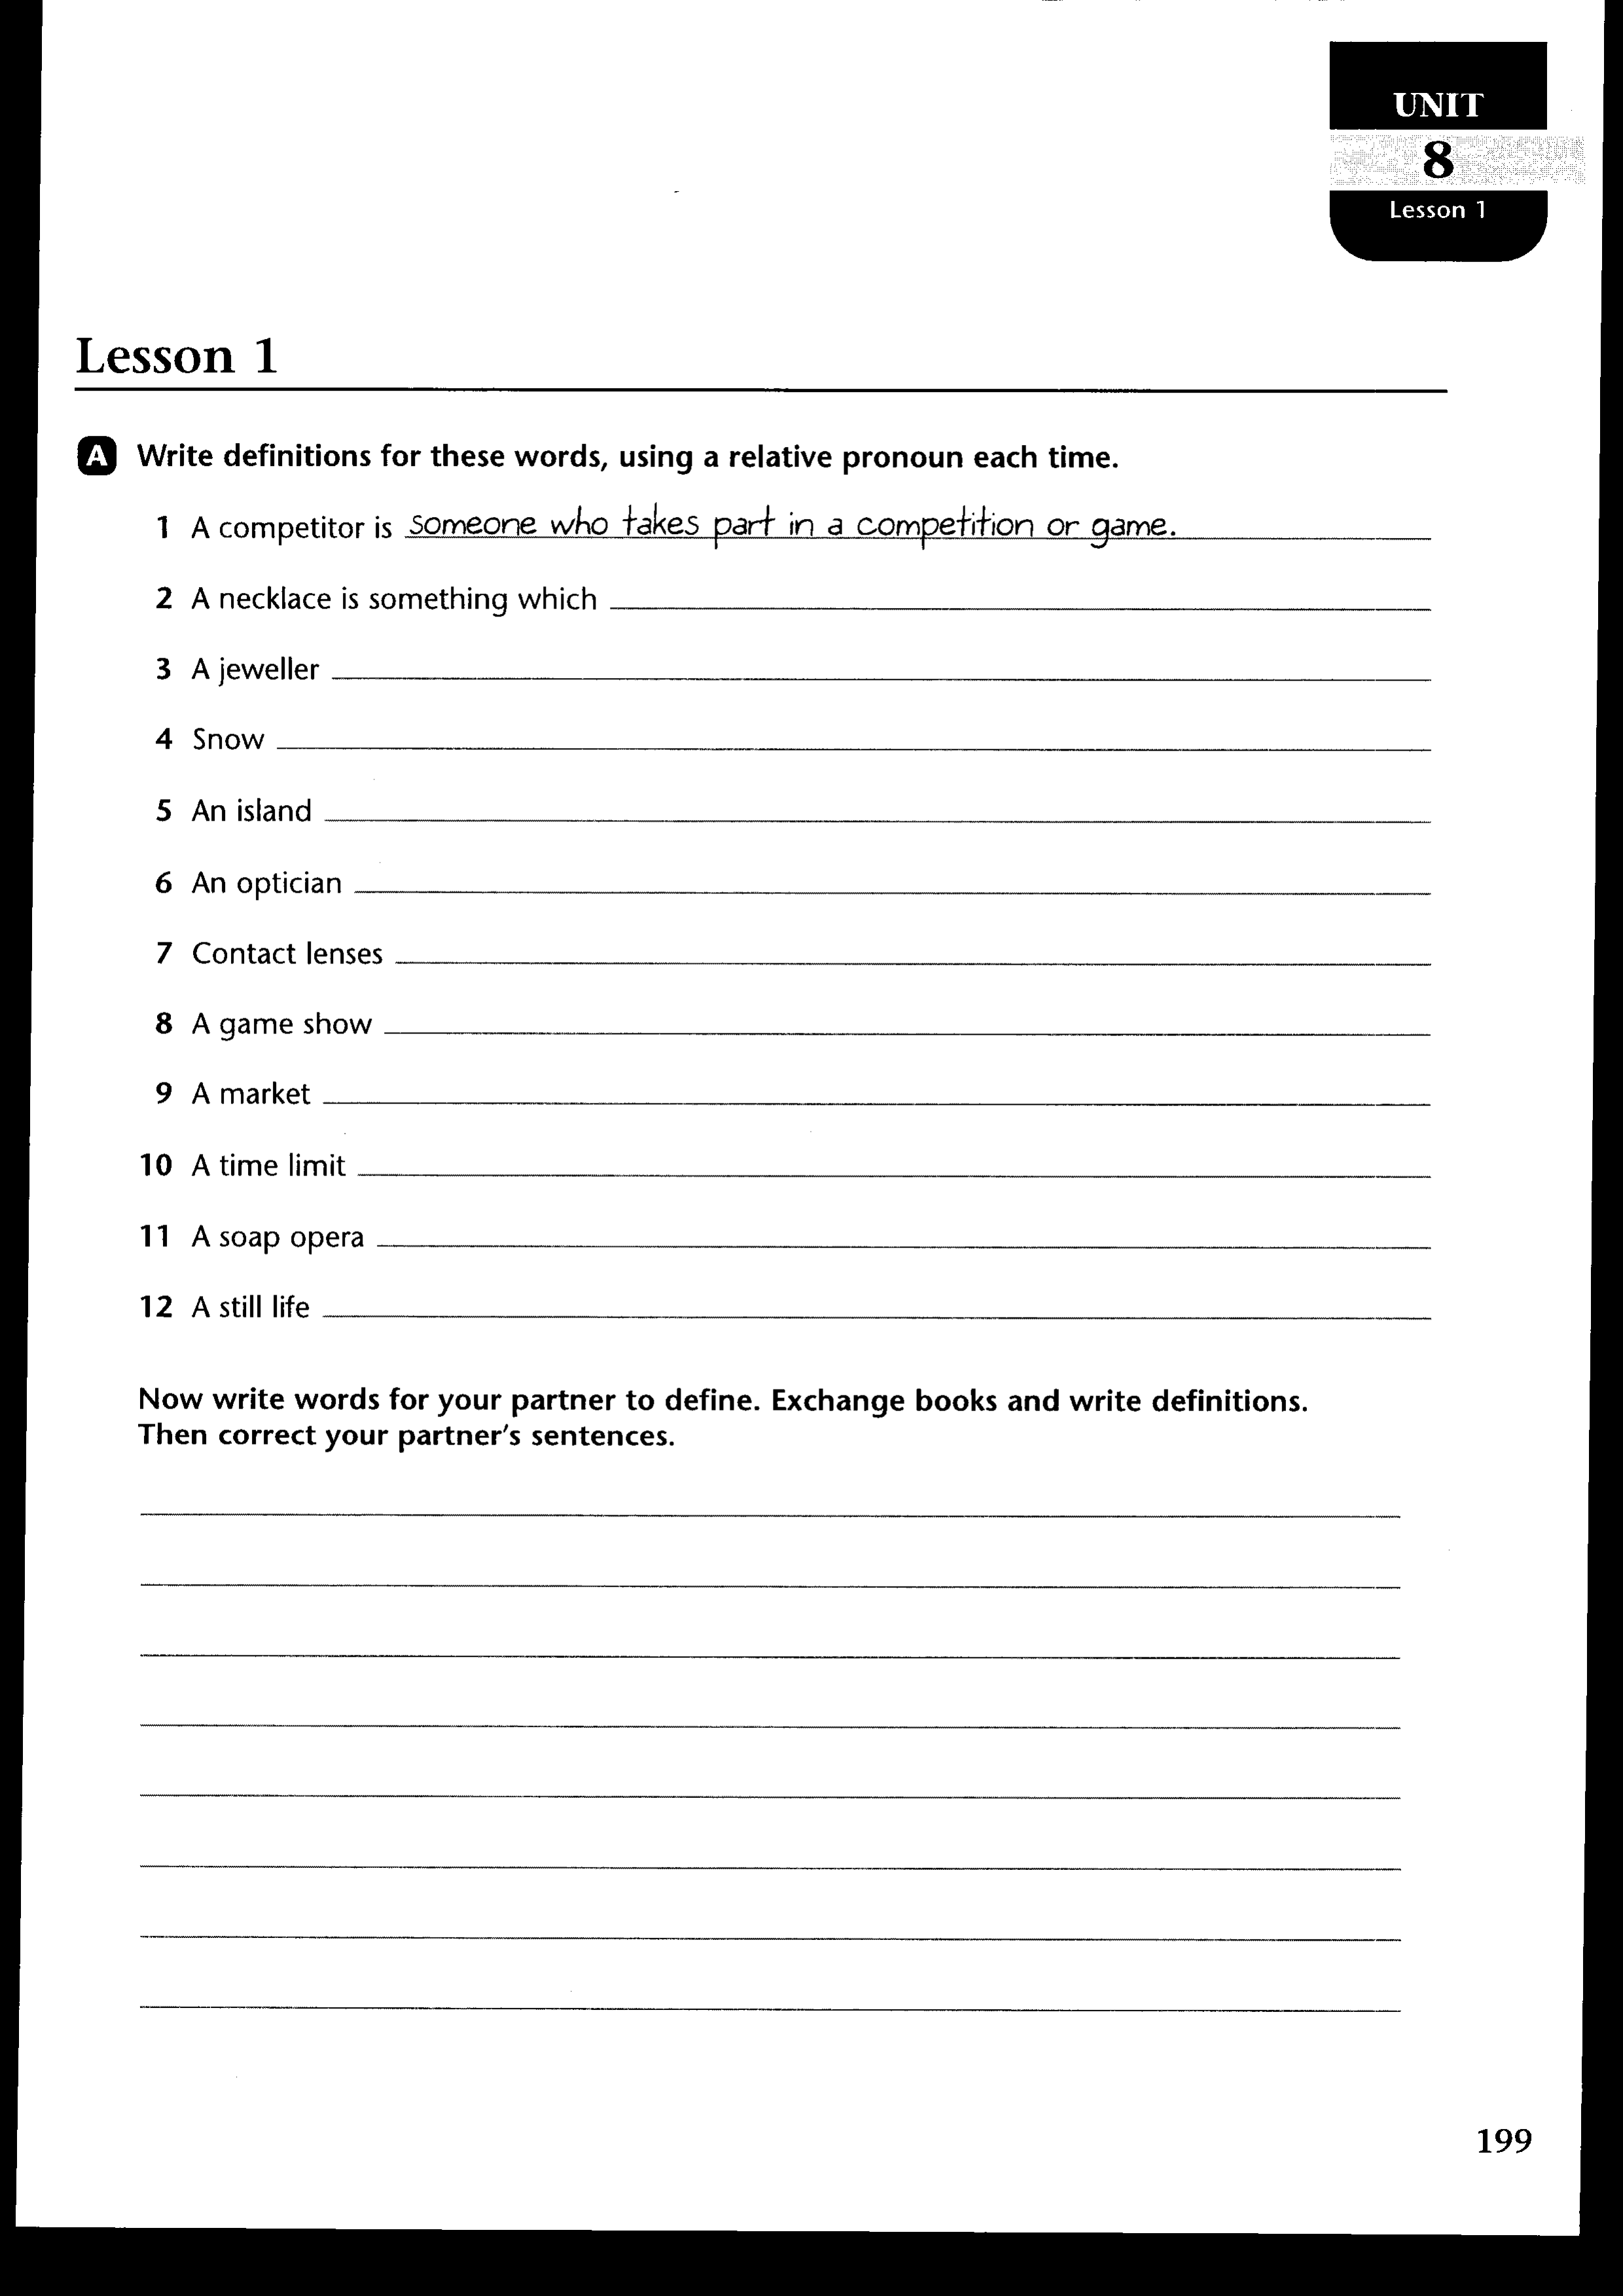 UNIT
8
Lesson 1
Lesson 1
A Write definitions for these words, using a relative pronoun each time.
1 A competitor is someone who takes part in a competition or game.
2 A necklace is something which
3 A jeweller
4 Snow
5 An island
6 An optician
7 Contact lenses
8 A game show
9 A market
10 A time limit
11 A soap opera
12 A still life
Now write words for your partner to define. Exchange books and write definitions.
Then correct your partner's sentences.
199